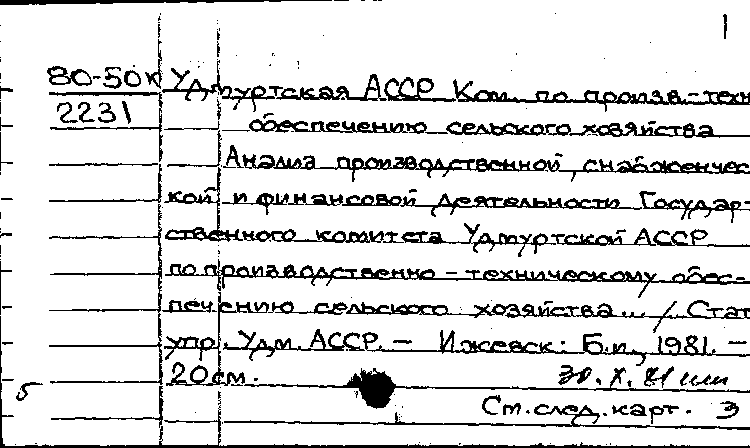 1
80-50к Удмуртская АССР Ком. по произв.-техн
2231 обеспечению сельского хозяйства
Анализ производственной, снабженчес
кой и финансовой деятельности Государ-
ственного комитета Удмуртской АССР
по производственно-техническому обес-
печению сельского хозяйства... / Стат
упр. Удм. АССР. - Ижевск: Б.и., 1981. -
20 см. 30.X.81
5 См.след.карт. 3